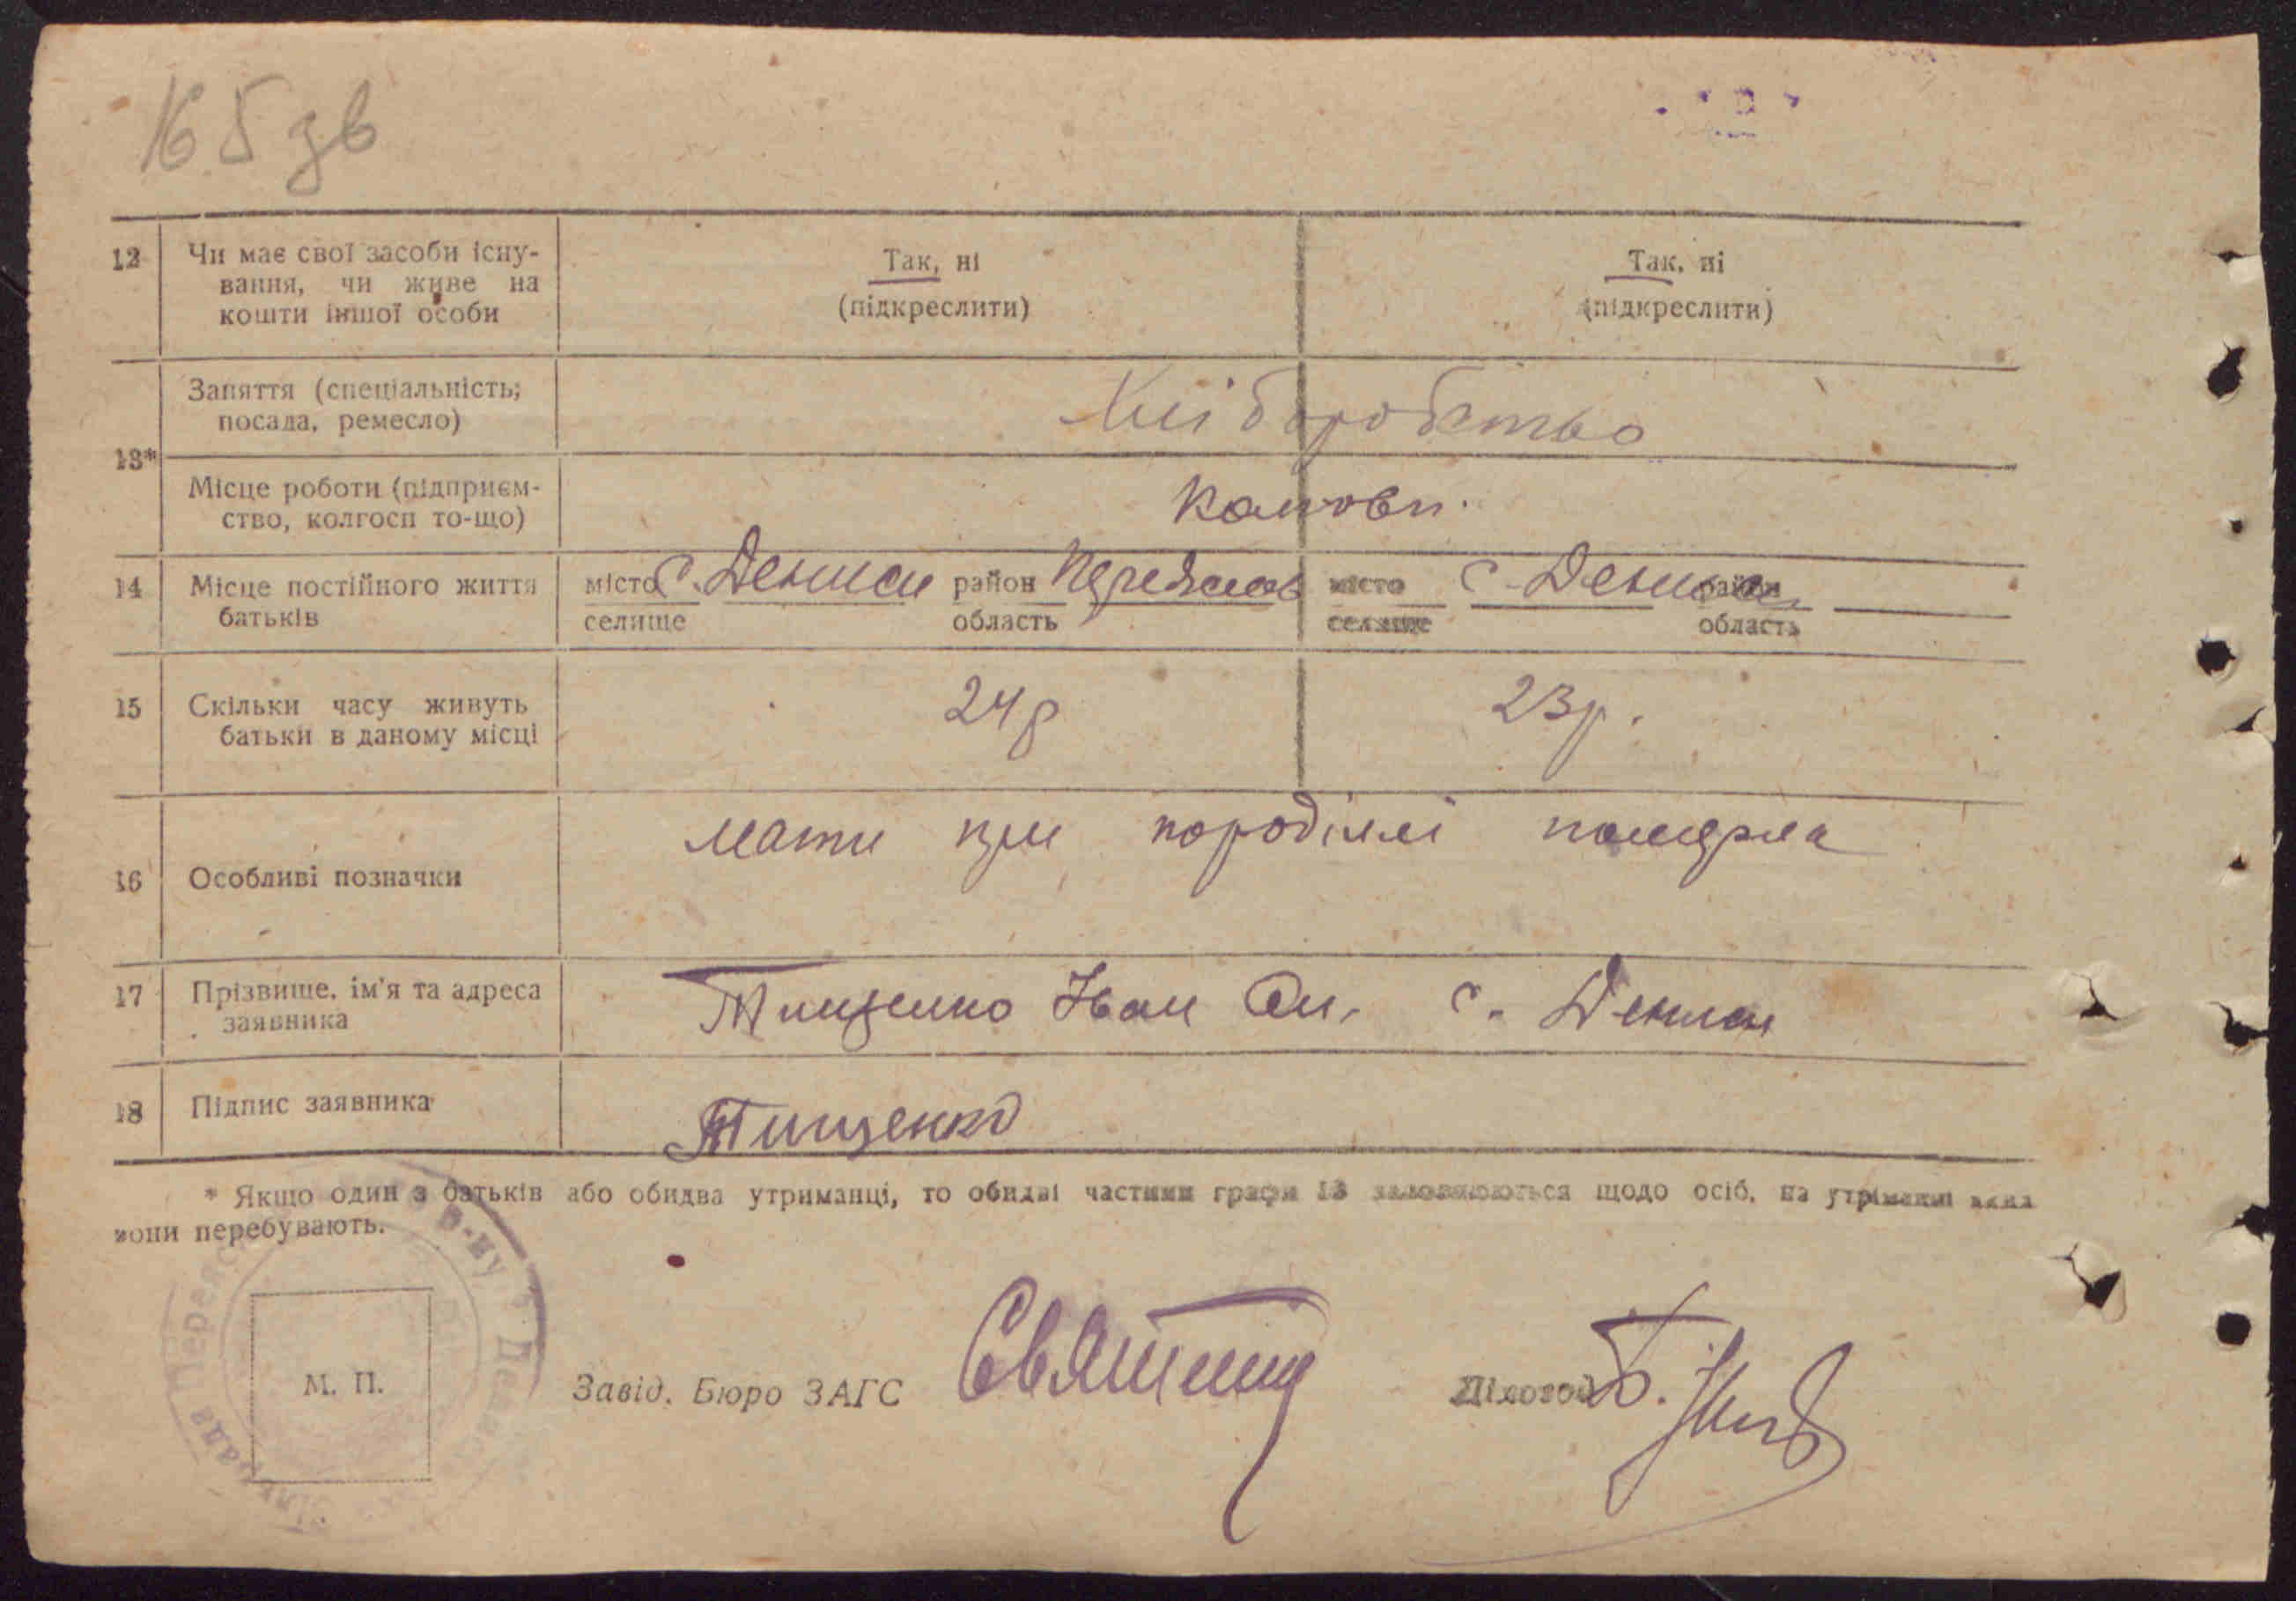 16 5 дв
12 Чи має свої засоби існу-
вання, чи живе на
кошти іншої особи
Так, ні
(підкреслити)
Так, ні
(підкреслити)
13*
Заняття (спеціальність;
посада, ремесло)
Хліборобство
Місце роботи (підприєм-
ство, колгосп то-що)
14 Місце постійного життя
батьків
місто с. Дениси район Переяслов
селище область
місто с. Дениси район
селище область
15 Скільки часу живуть
батьки в даному місці
24 р
23 р.
16 Особливі позначки
мати при породіллі померла
17 Прізвище, ім'я та адреса
заявника
Тищенко Іван Ол. с. Дениси
18 Підпис заявника
Тищенко
* Якщо один з батьків або обидва утриманці, то обидві частини графи 13 заповнюються щодо осіб, на утриманні яких
вони перебувають.
М. П.
Завід. Бюро ЗАГС
Діловод